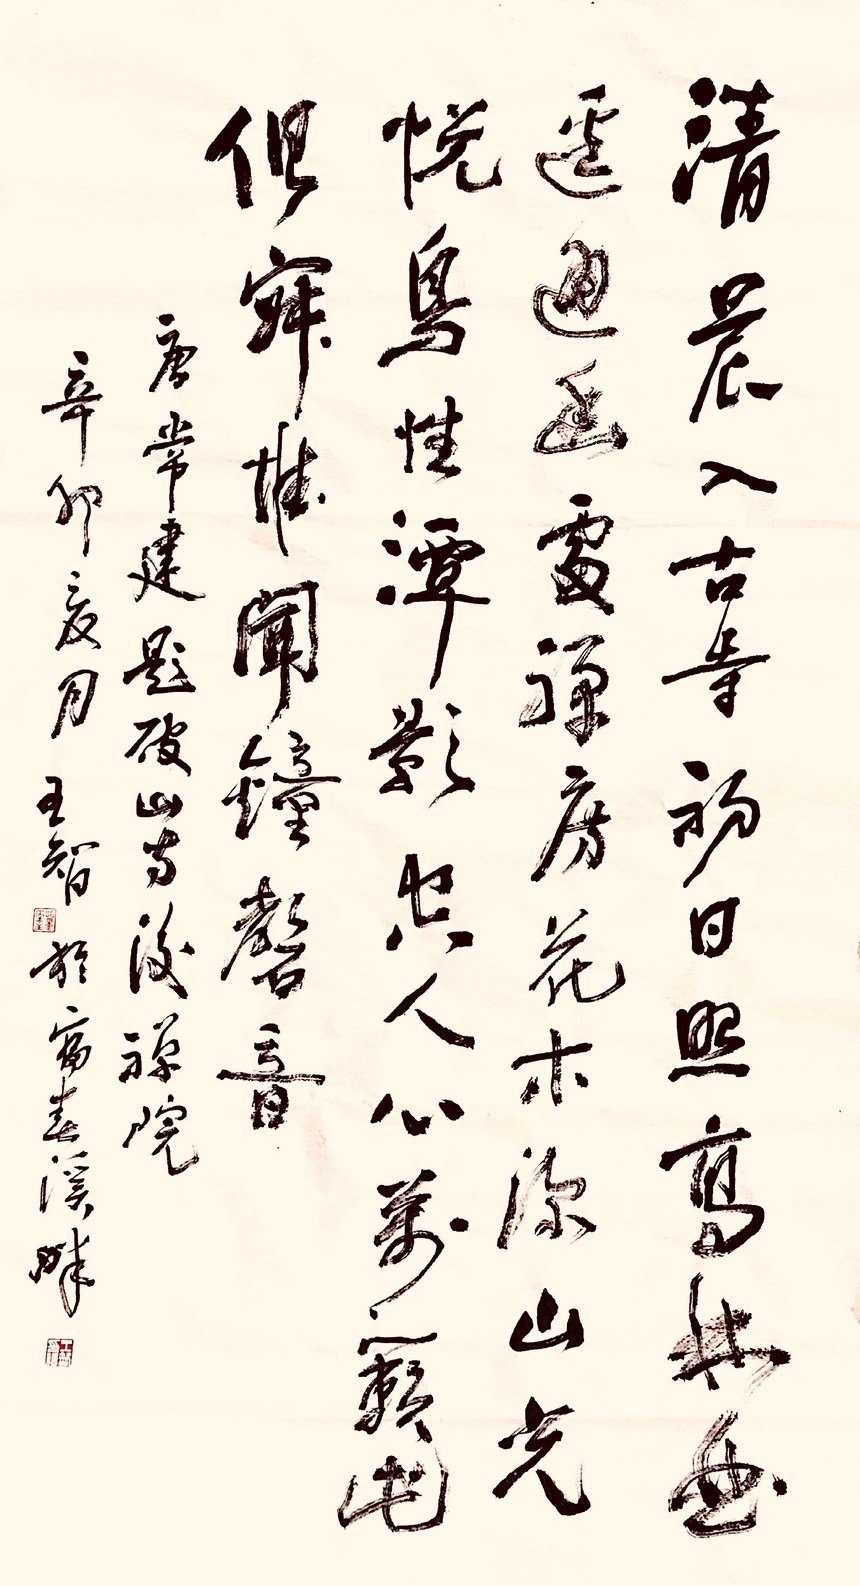 清晨入古寺初日照高林曲
逕通幽處禪房花木深山光
悦鳥性潭影空人心萬籟此
俱寂惟聞鐘磬音
唐常建題破山寺後禪院
辛卯夏月王智於富春溪畔